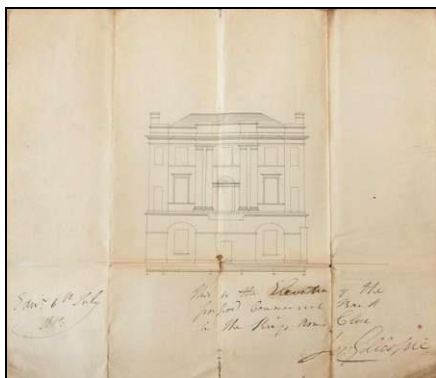 6th July
This is the Elevation of the
Commercial Bank
in the Kings Arms Close
Gillespie